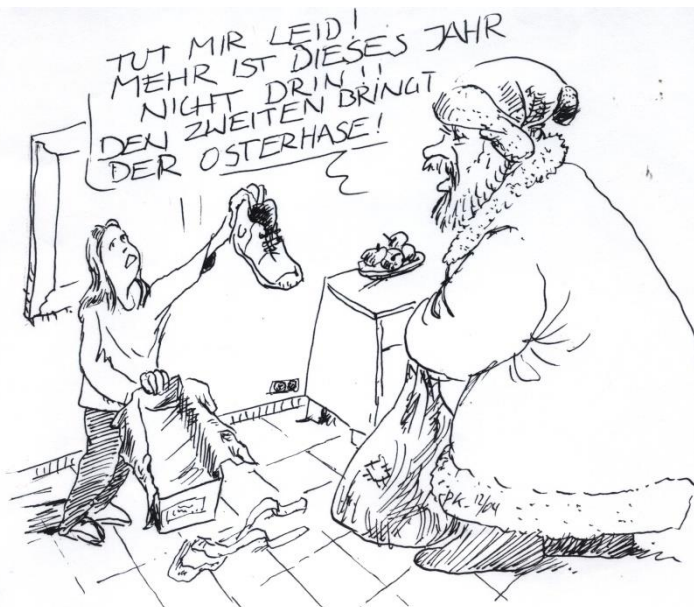 TUT MIR LEID!
MEHR IST DIESES JAHR
NICHT DRIN!!
DEN ZWEITEN BRINGT
DER OSTERHASE!
12/04